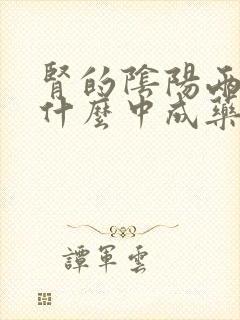 腎的陰陽兩
什麼中成藥
譚軍雲